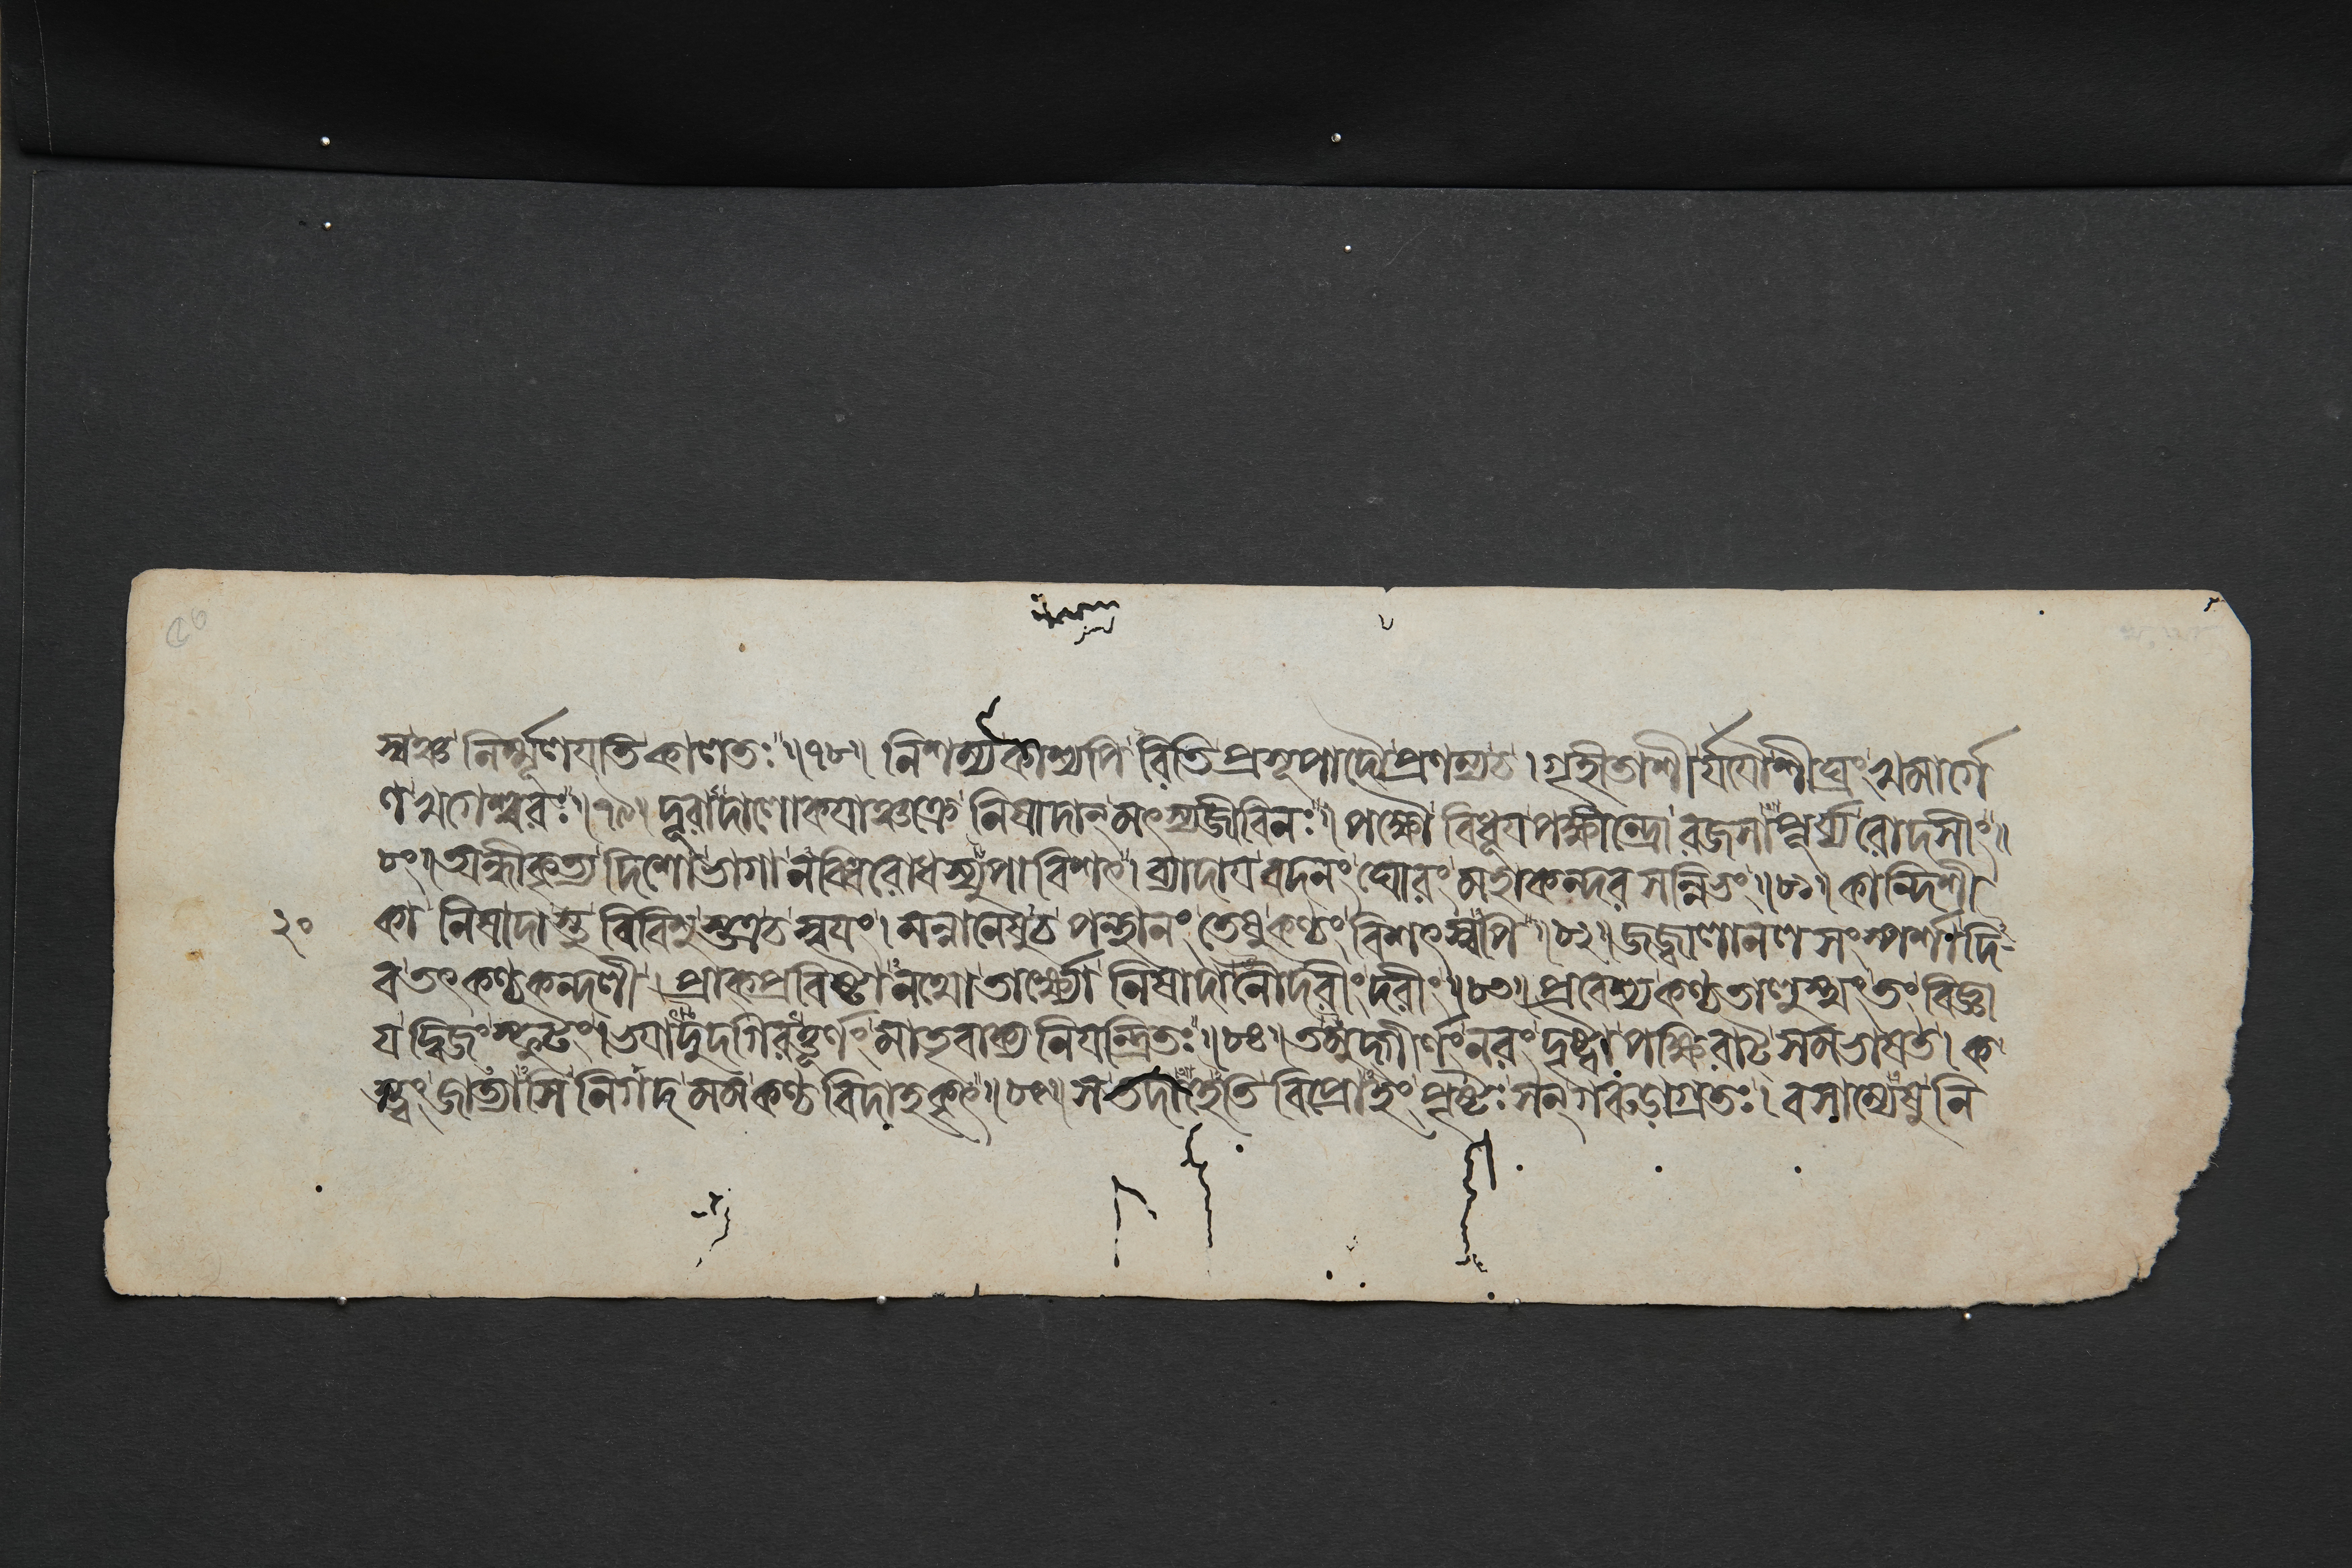 স্বঞ্চ নির্ম্মূলযতি কালতঃ॥৭৮॥ নিশম্যকাশ্যপি রিতি প্রসূপাদৌ প্রণম্যচ। গৃহীতাশী র্যযৌ শীঘ্রং খমার্গে
ণ খগেশ্বরঃ॥৭৯॥ দূরাদালোকযাঞ্চক্রে নিষাদান্ মৎস্যজীবিনঃ। পক্ষৌ বিধূয পক্ষীন্দ্রো রজসাপূর্য্য রোদসীং॥
৮০॥ অন্ধীকৃত্য দিশোভাগা নব্ধিরোধস্যুপাবিশৎ। ব্যাদায বদনং ঘোরং মহাকন্দর সন্নিভং॥৮১॥ কান্দিশী
২০ কা নিষাদাস্তু বিবিশুস্তত্রচ স্বযং। মন্বানেষুচ পন্থানং তেষু কণ্ঠং বিশৎস্বপি॥৮২॥ জজ্বালানল সংস্পর্শা দি
ব তৎ কণ্ঠকন্দলী। প্রাক্ প্রবিষ্টা নথো তার্ক্ষ্যো নিষাদা নৌদরীং দরীং॥৮৩॥ প্রবেশ্য কণ্ঠতালুস্থং তং বিজ্ঞা
য দ্বিজং স্ফুটং। ভযাদুদগিরত্তূর্ণং মাতৃবাক্য নিযন্ত্রিতঃ॥৮৪॥ তমুদ্গীর্ণং নরং দৃষ্ট্বা পক্ষিরাট্ সমভাষত। ক
স্ত্বং জাত্যাসি নিগদ মম কণ্ঠ বিদাহকৃৎ॥৮৫॥ স তদাহেতি বিপ্রোহং পৃষ্টঃ সন্ গরুডাগ্রতঃ। বসাম্যেষু নি